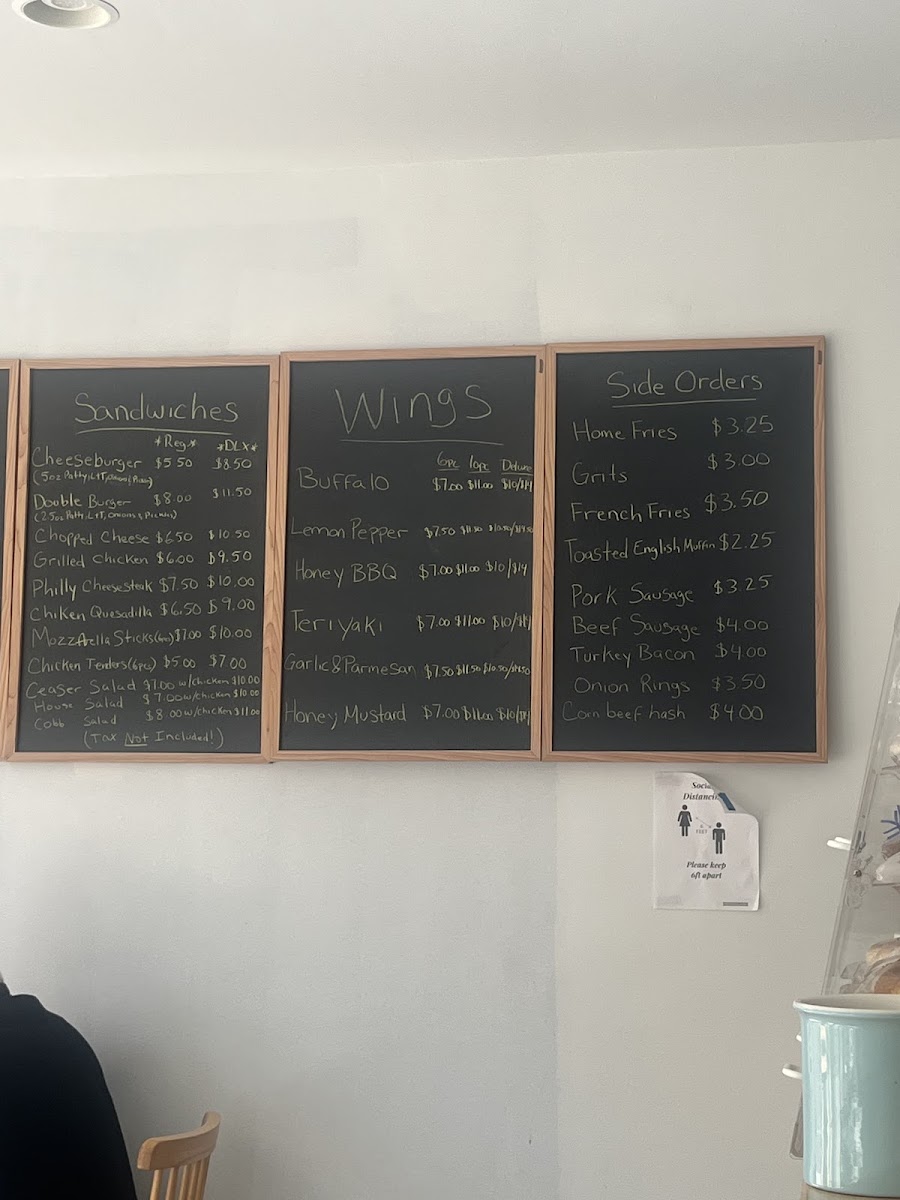 Sandwiches
*Reg* *DLX*
Cheeseburger $5.50 $8.50
(5oz Patty, L+T, Onions, Pickles)
Double Burger $8.00 $11.50
(2 5oz Patty, L+T, Onions & Pickles)
Chopped Cheese $6.50 $10.50
Grilled Chicken $6.00 $9.50
Philly Cheesesteak $7.50 $10.00
Chiken Quesadilla $6.50 $9.00
Mozzarella Sticks(6pc) $7.00 $10.00
Chicken Tenders(6pcs) $5.00 $7.00
Ceaser Salad $7.00 w/chicken $10.00
House Salad $7.00 w/chicken $10.00
Cobb Salad $8.00 w/chicken $11.00
(Tax Not Included!)
Wings
6pc 10pc Deluxe
Buffalo $7.00 $11.00 $10/$14
Lemon Pepper $7.50 $11.50 $10.50/$14.50
Honey BBQ $7.00 $11.00 $10/$14
Teriyaki $7.00 $11.00 $10/$14
Garlic&Parmesan $7.50 $11.50 $10.50/$14.50
Honey Mustard $7.00 $11.00 $10/$14
Side Orders
Home Fries $3.25
Grits $3.00
French Fries $3.50
Toasted English Muffin $2.25
Pork Sausage $3.25
Beef Sausage $4.00
Turkey Bacon $4.00
Onion Rings $3.50
Corn beef hash $4.00
Social
Distancing
6
FEET
Please keep
6ft apart